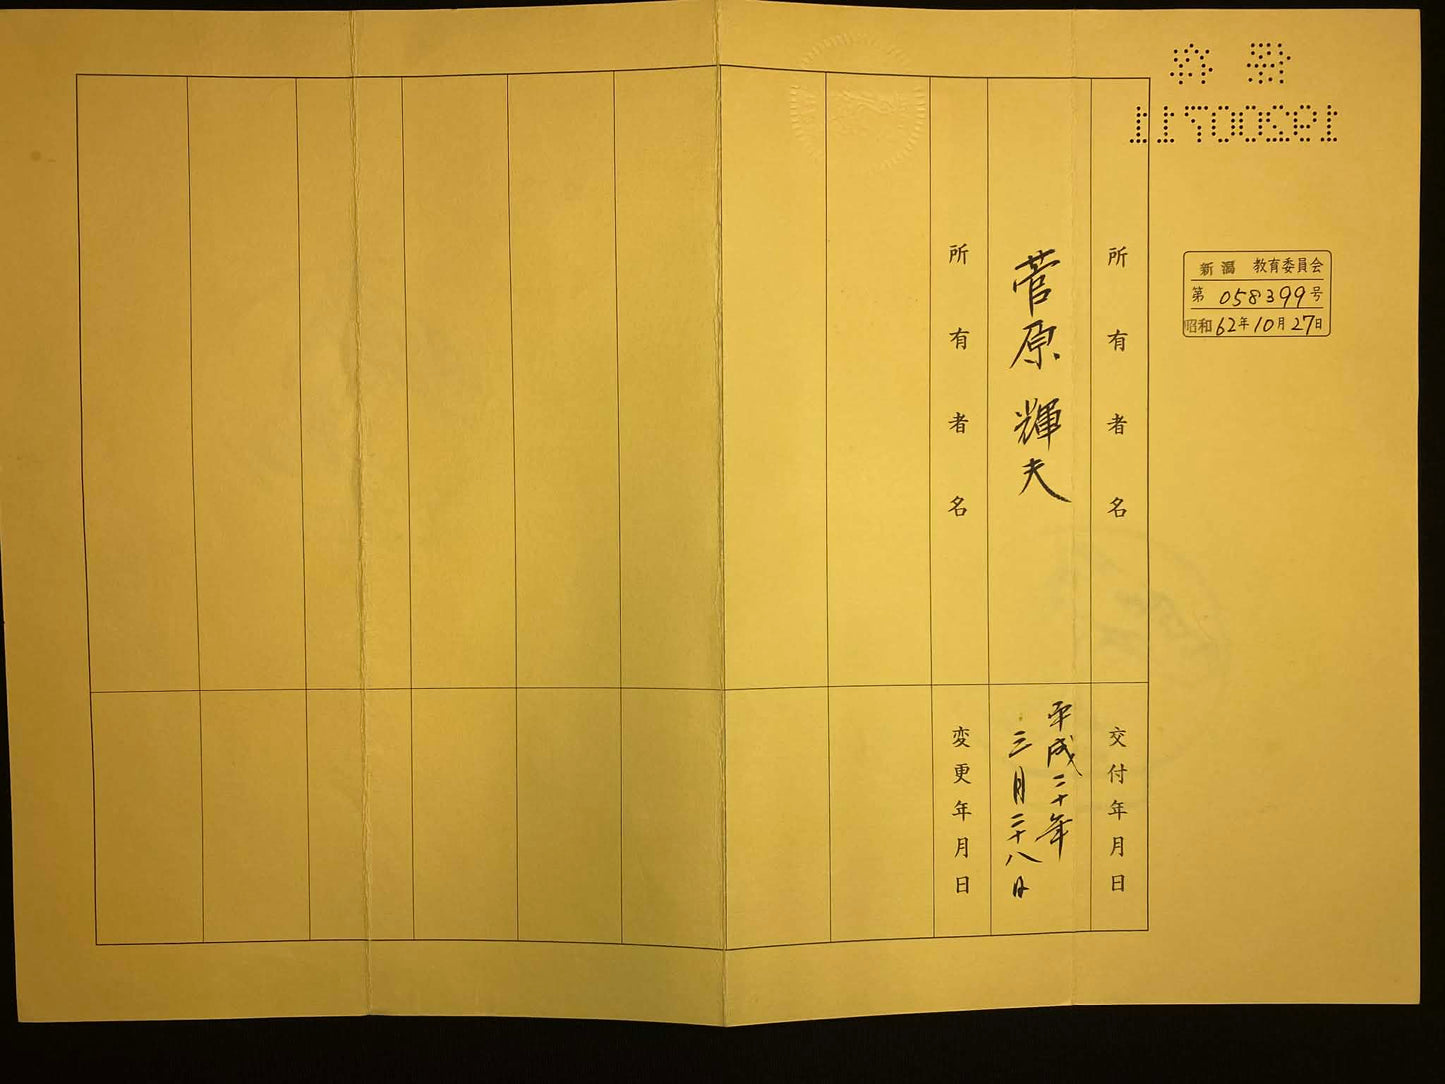 新潟 教育委員会
第 058399号
昭和62年10月27日
所有者名
交付年月日
菅原輝夫
平成二十年
三月二十八日
所有者名
変更年月日